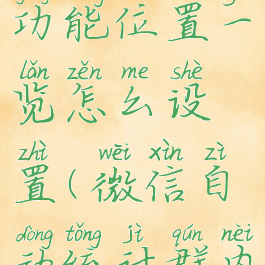 功能位置一
lǎn zěn me shè
览怎么设
zhì wēi xìn zì
置(微信自
dòng tǒng jì qún nèi
动统计群内